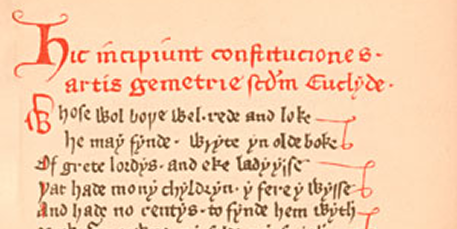 Hic incipiunt constituciones
artis gemetrie scdm Euclyde.
Whose wol boþe wel rede and loke
he may fynde wryte yn olde boke
Of grete lordys and eke ladyysse
þat hade mony chyldryn y fere y wysse
And hade no rentys to fynde hem wyth